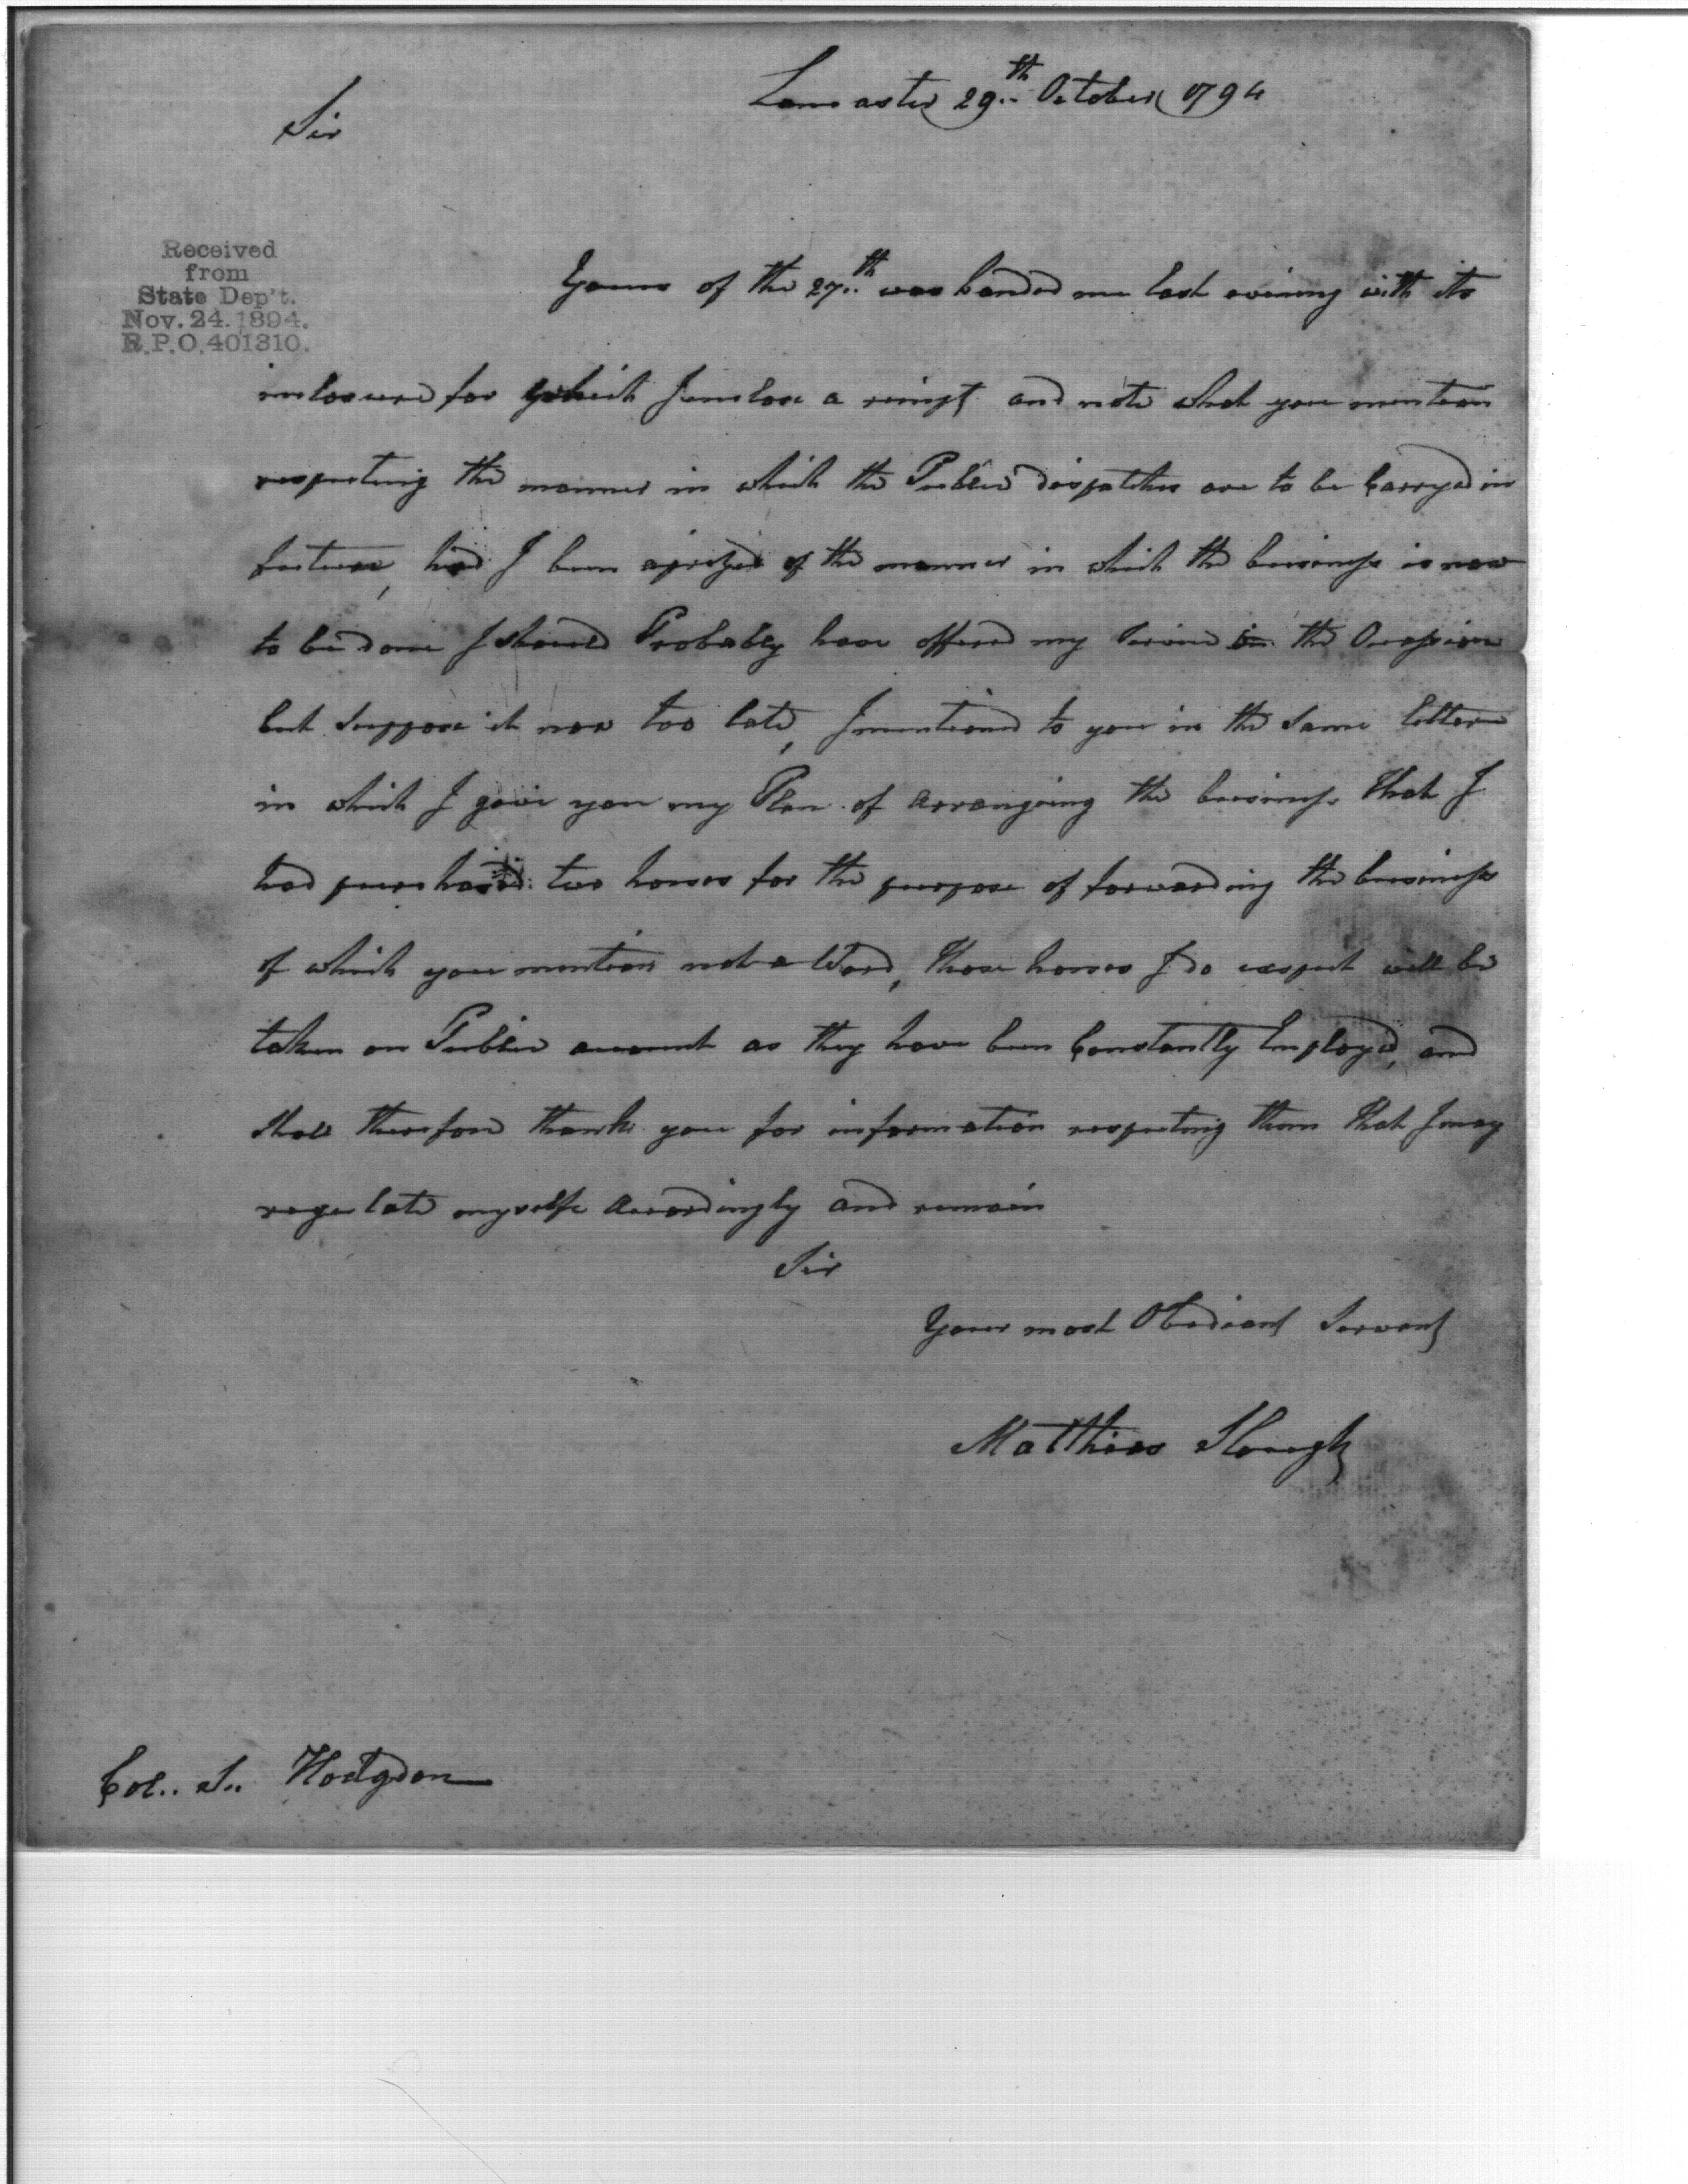 Lancaster 29th October 1794
Sir
Received
from
State Dep't.
Nov. 24. 1894.
R.P.O. 401310.
Yours of the 27th was handed me last evening with its
inclosure for which I enclose a recipt and note what you mention
respecting the manner in which the Public dispatches are to be Carryed in
future, had I been aprized of the manner in which the business is now
to be done I should Probably have offered my Service in the Occasion
but Suppose it now too late, I mentioned to you in the Same letter
in which I gave you my Plan of Arrangeing the business that I
had purchased two horses for the purpose of forwarding the business
of which you mention not a Word, Those horses I do expect will be
taken on Public account as they have been Constantly Employ'd, and
shall therefore thank you for information respecting them that I may
regulate myselfe Accordingly and remain
Sir
Your most Obediant Servant
Matthias Slough
Col.. S.. Hodgdon